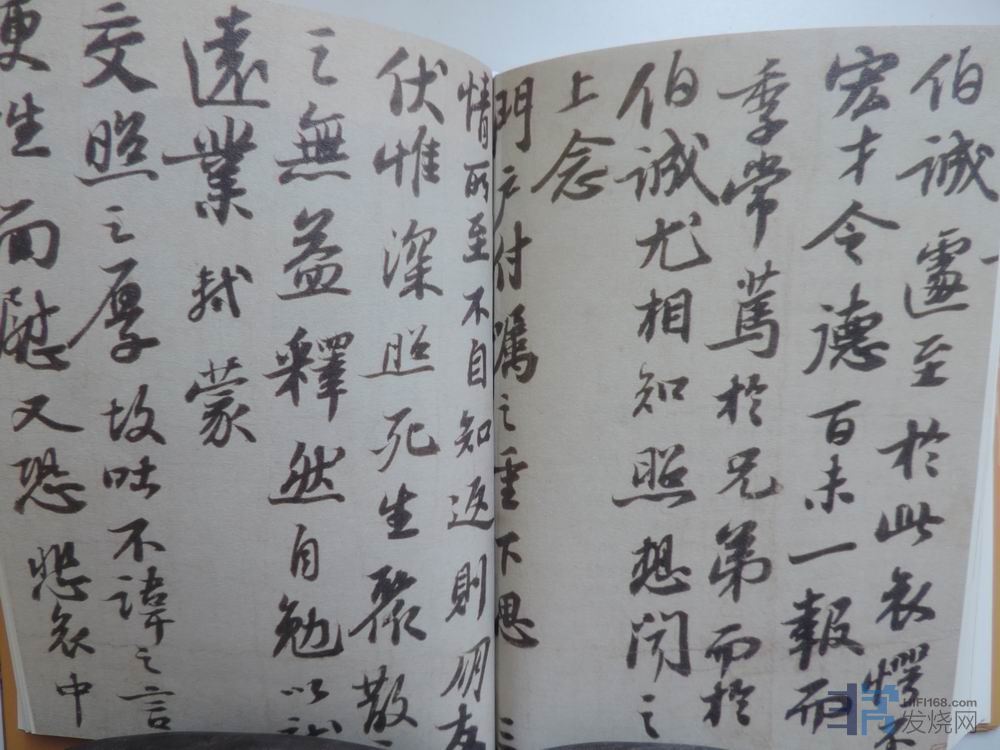 伯誠遽至於此哀愕不
宏才令德百未一報而
季常篤於兄弟而於
伯誠尤相知照想聞之
上念
門户付囑之重下思三
情所至不自知返則朋友
伏惟深照死生聚散
之無益釋然自勉以就
遠業軾蒙
交照之厚故吐不諱之言
更生面慰又恐悲哀中
HIFI168.com
发烧网